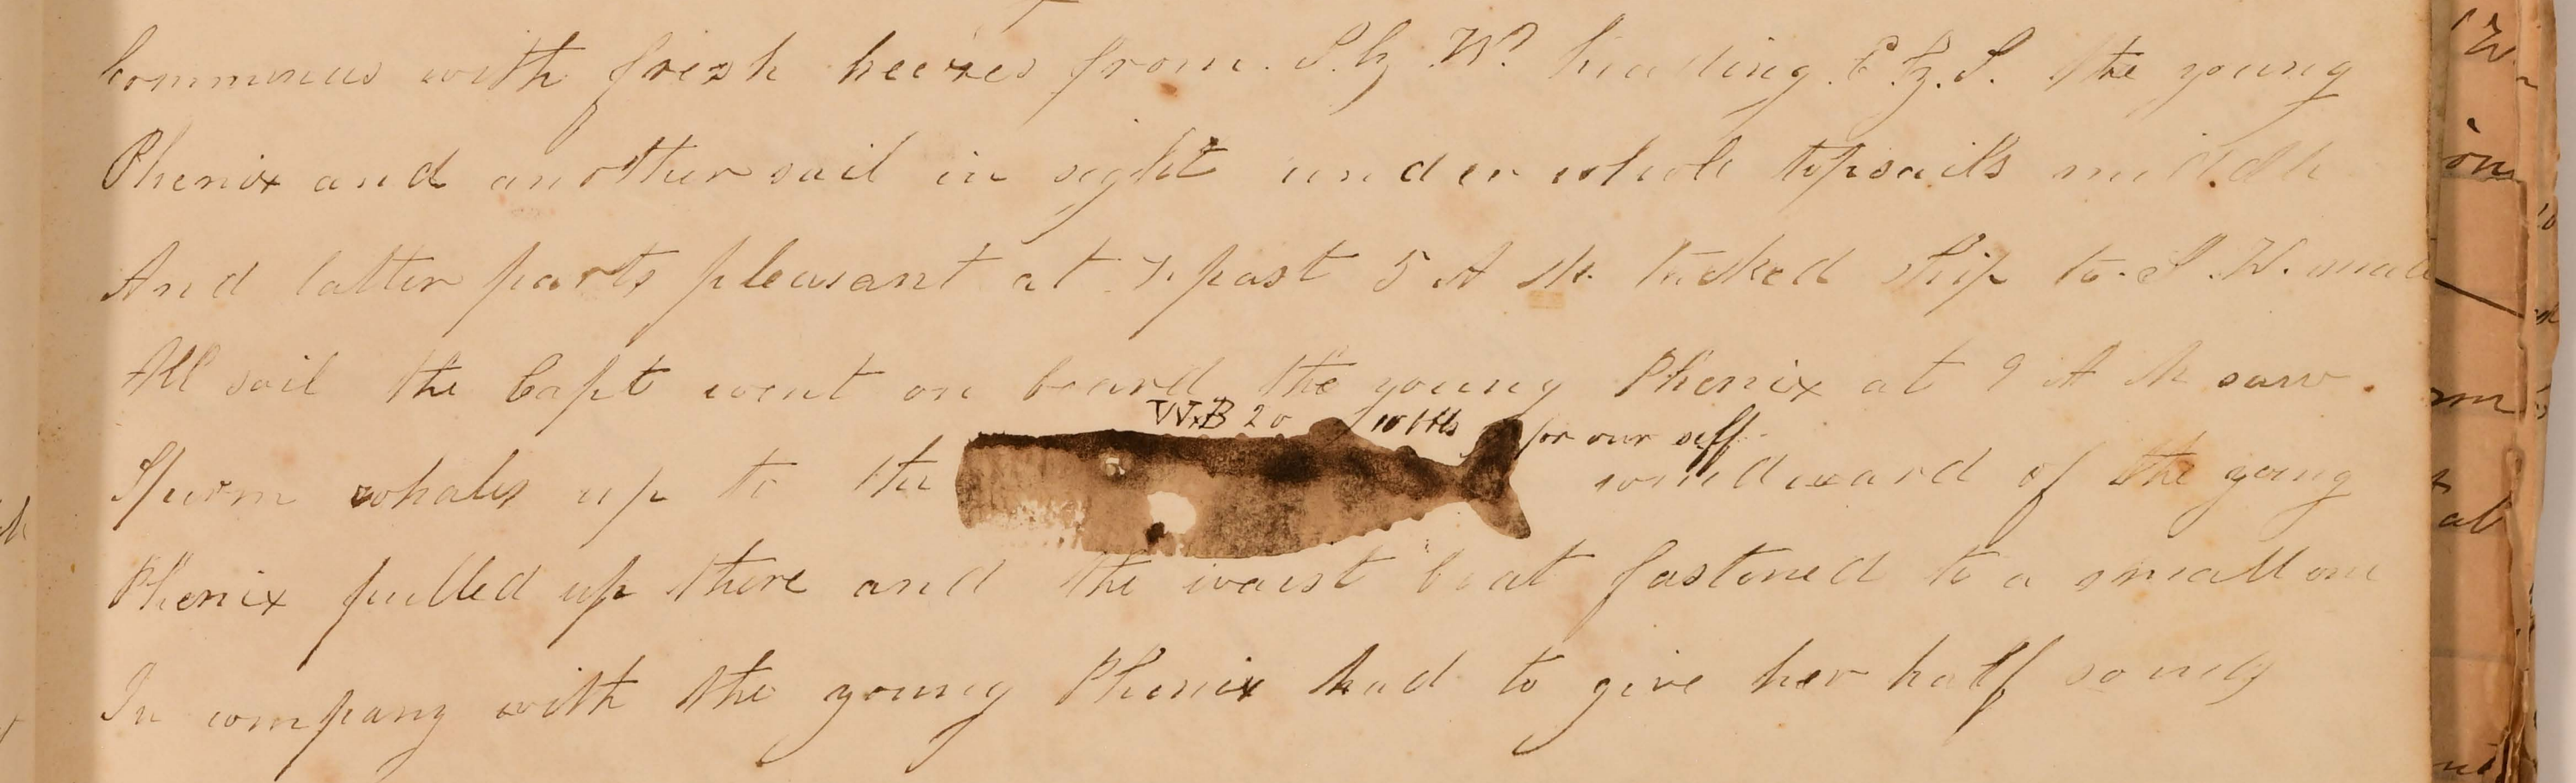 Commences with fresh breezes from S. by W. heading E. by. S. the young
Phenix and another sail in sight under whole topsails middle
And latter parts pleasant at past 5 A M. tacked ship to S. W. made
All sail the Capt went on board the young Phenix at 9 A M saw
W.B 20 10 bbls for our self
Sperm whales up to the windward of the young
Phenix pulled up there and the waist boat fastened to a small one
In company with the young Phenix had to give her half